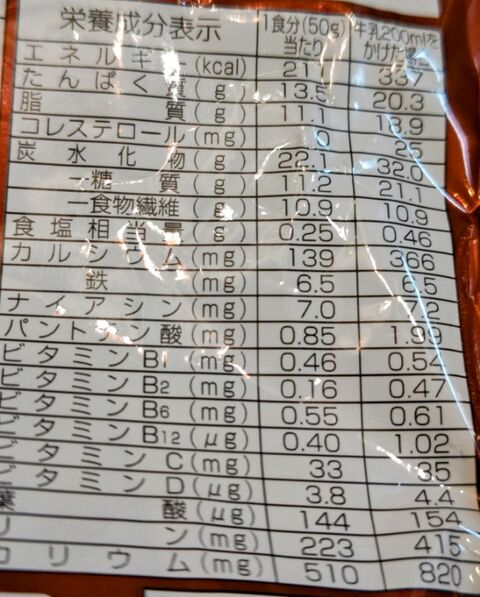 栄養成分表示 1食分(50g)当たり 牛乳200mlをかけた場合
エネルギー(kcal) 21 337
たんぱく質(g) 13.5 20.3
脂質(g) 11.1
コレステロール(mg) 0 25
炭水化物(g) 22.1 32.0
―糖質(g) 11.2 21.1
―食物繊維(g) 10.9 10.9
食塩相当量(g) 0.25 0.46
カルシウム(mg) 139 366
鉄(mg) 6.5 6.5
ナイアシン(mg) 7.0
パントテン酸(mg) 0.85 1.99
ビタミンB1(mg) 0.46 0.54
ビタミンB2(mg) 0.16 0.47
ビタミンB6(mg) 0.55 0.61
ビタミンB12(μg) 0.40 1.02
ビタミンC(mg) 33 35
ビタミンD(μg) 3.8 4.4
葉酸(μg) 144 154
リン(mg) 223 415
カリウム(mg) 510 820